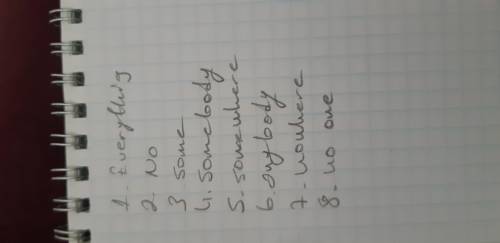 1 - Everything
2 - No
3 some
4. somebody
5 - somewhere
6. anybody
7 - nowhere
8 - no one